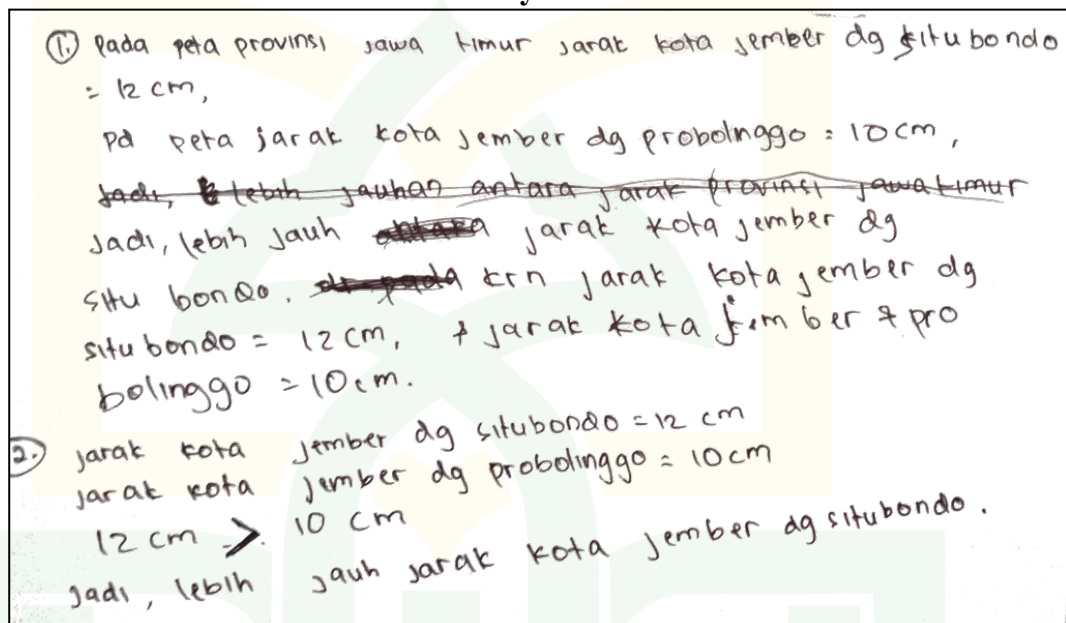 1. Pada peta provinsi jawa timur jarak kota jember dg situbondo
= 12 cm,
pd peta jarak kota jember dg probolnggo = 10 cm,
Jadi, lebih jauhan antara jarak provinsi jawa timur
Jadi, lebih jauh antara jarak kota jember dg
situ bondo. krn jarak kota jember dg
situ bondo = 12 cm, & jarak kota jember & pro
bolinggo = 10 cm.
2. jarak kota jember dg situbondo = 12 cm
jarak kota jember dg probolinggo = 10 cm
12 cm > 10 cm
Jadi, lebih jauh jarak kota jember dg situbondo.